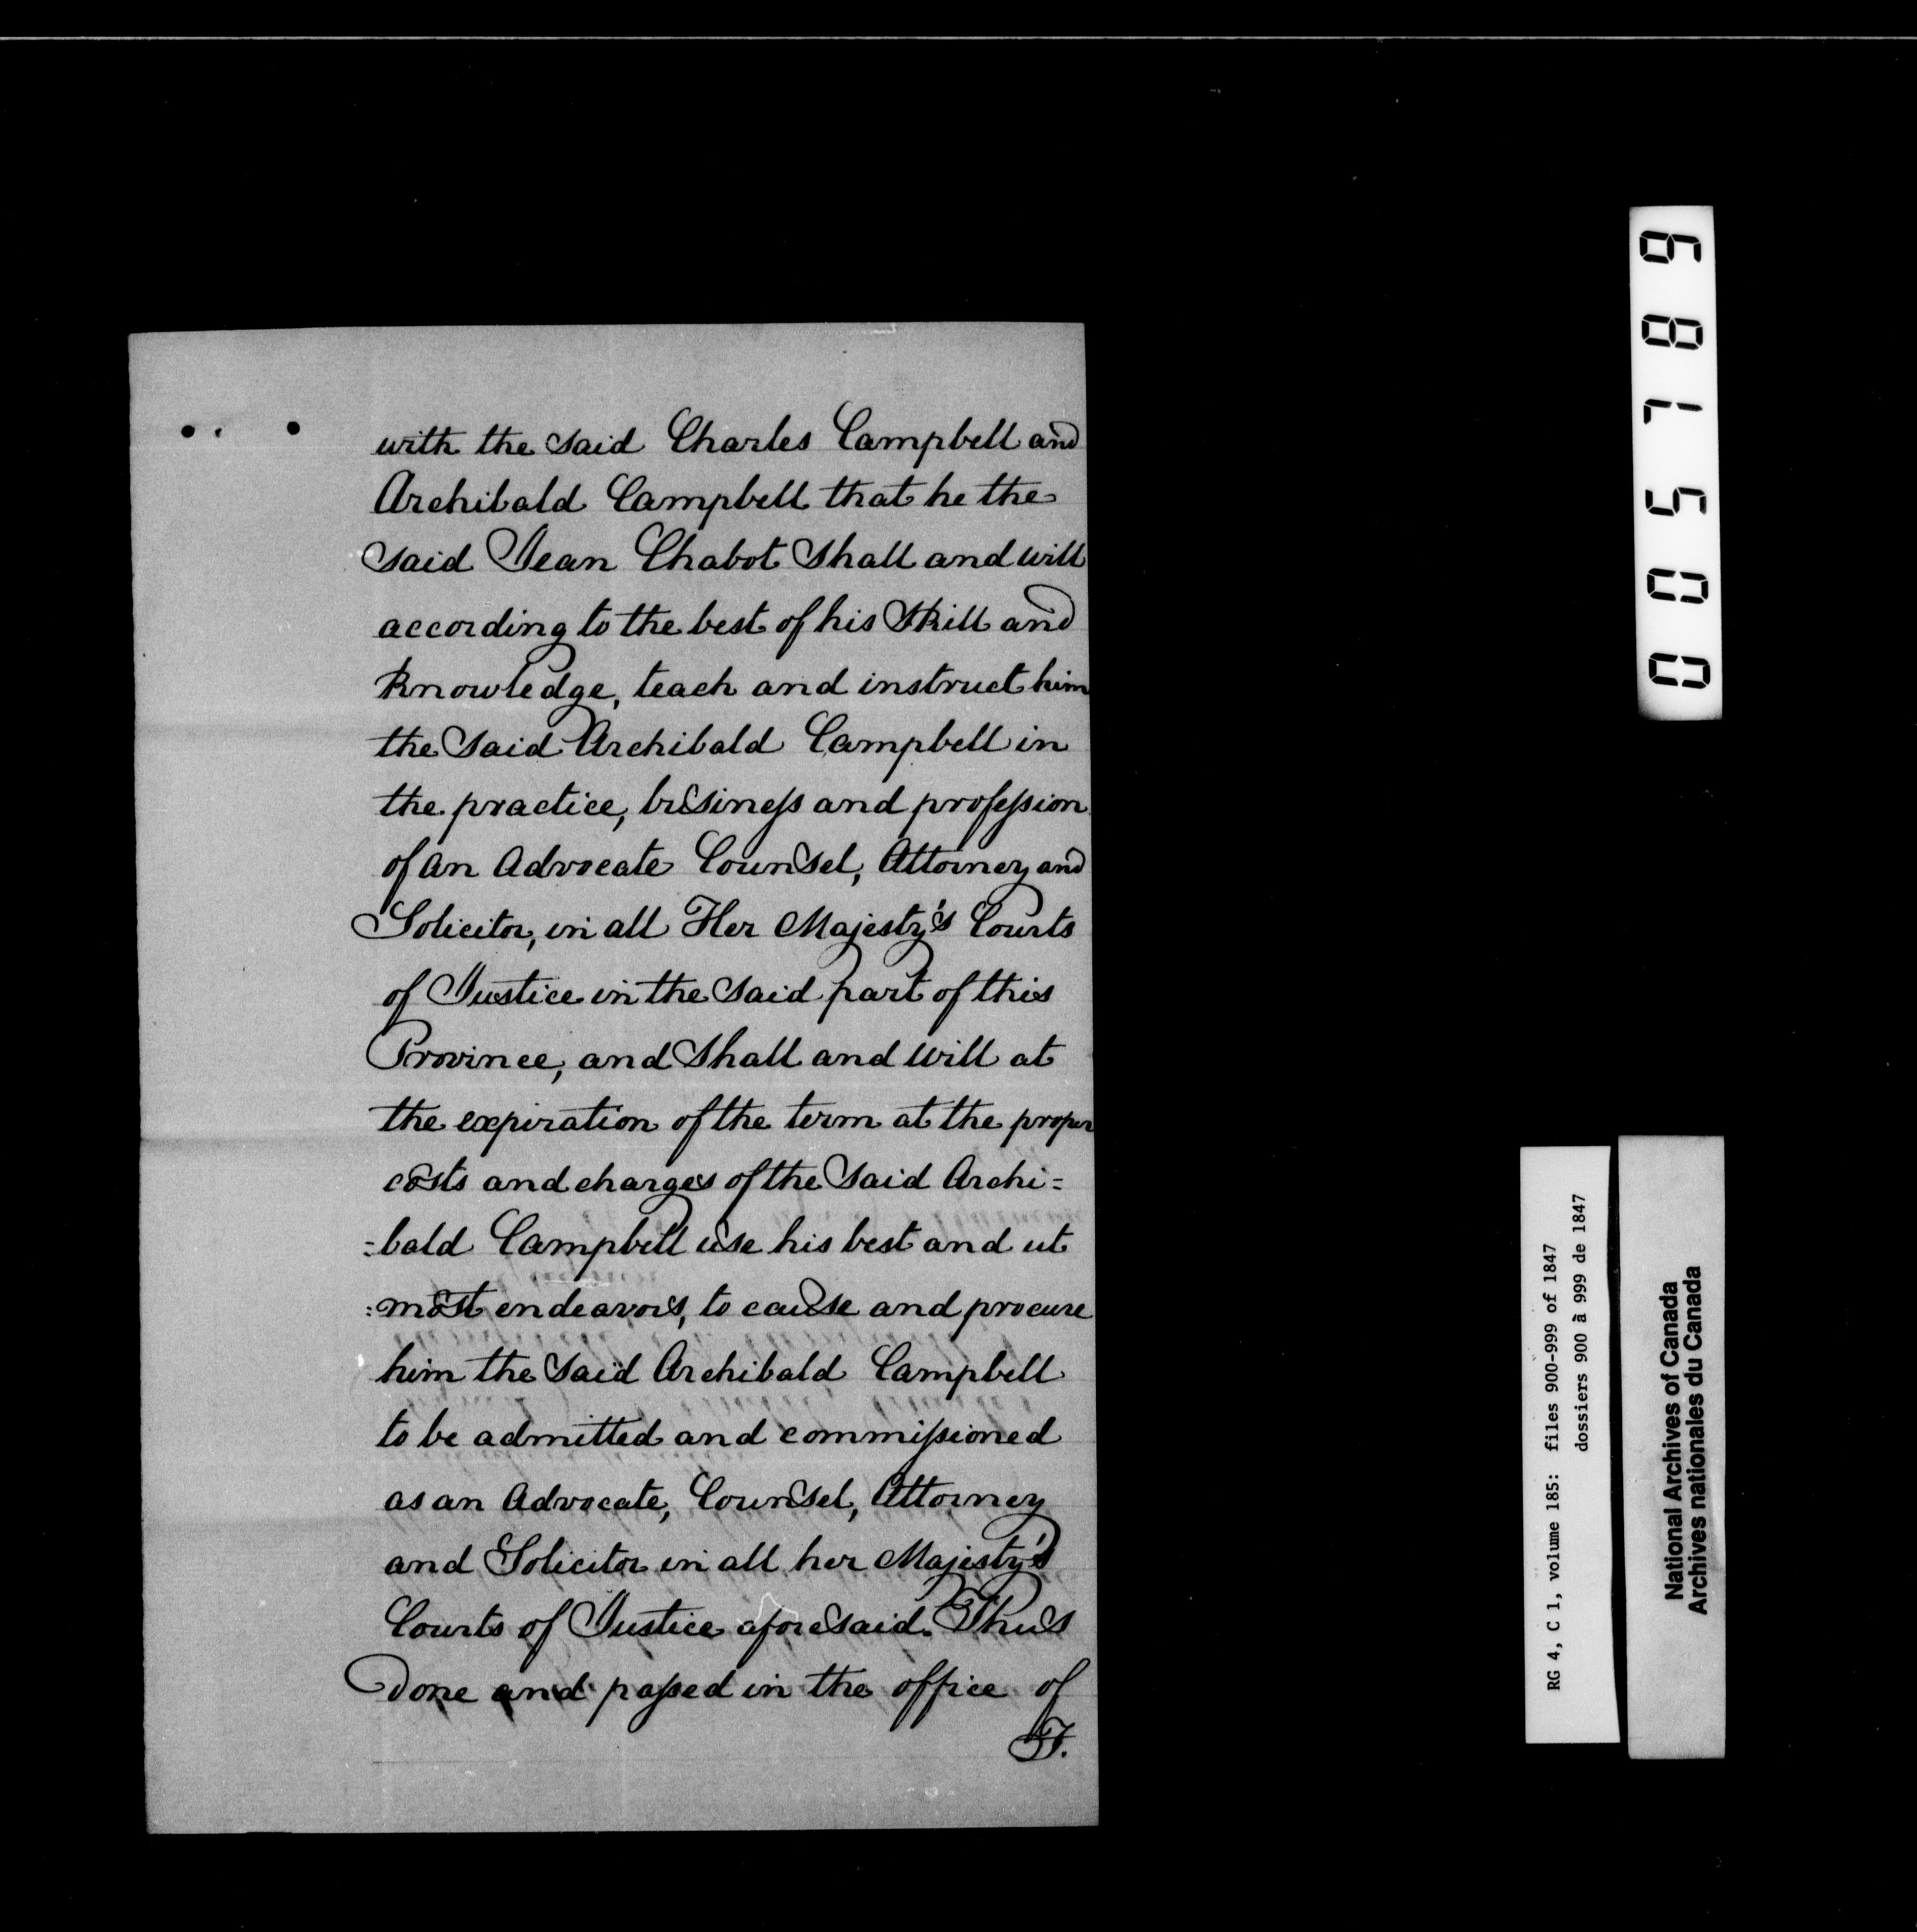 with the said Charles Campbell and
Archibald Campbell that he the
said Jean Chabot shall and will
according to the best of his skill and
knowledge, teach and instruct him
the said Archibald Campbell in
the practice, business and profession
of an Advocate Counsel, Attorney and
Solicitor, in all Her Majesty's Courts
of Justice in the said part of this
Province, and shall and will at
the expiration of the term at the proper
costs and charges of the said Archi=
=bald Campbell use his best and ut
=most endeavors, to cause and procure
him the said Archibald Campbell
to be admitted and commissioned
as an Advocate, Counsel, Attorney
and Solicitor in all her Majesty's
Courts of Justice aforesaid. Thus
Done and passed in the office of
F.
005789
RG 4, C 1, volume 185: files 900-999 of 1847
dossiers 900 à 999 de 1847
National Archives of Canada
Archives nationales du Canada